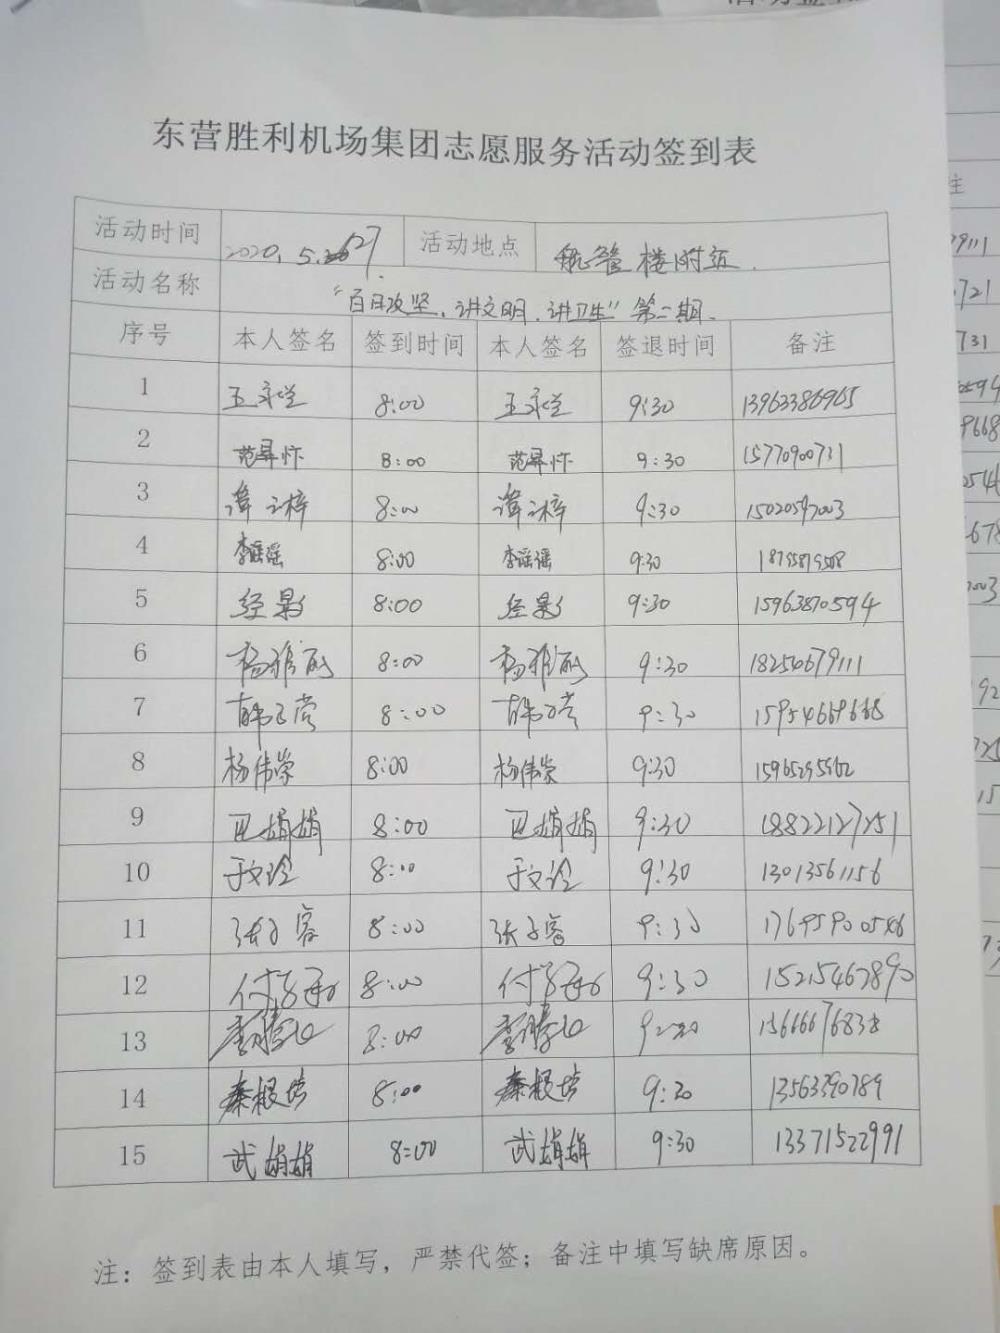 东营胜利机场集团志愿服务活动签到表
活动时间 2020.5.27 活动地点 航管楼附近.
活动名称 “百日攻坚、讲文明、讲卫生”第二期.
序号 本人签名 签到时间 本人签名 签退时间 备注
1 8:00 9:30 13963386965
2 范昇忤 8:00 范昇忤 9:30 15770900731
3 谭梓 8:00 谭梓 9:30 15020597003
4 李谣谣 8:00 李谣谣 9:30
5 经影 8:00 经影 9:30 15963870594
6 杨雅 8:00 杨雅 9:30 18254679111
7 韩子 8:00 韩子 9:30 15954669668
8 杨伟荣 8:00 杨伟荣 9:30
9 娟娟 8:00 娟娟 9:30 18822127251
10 于文玲 8:00 于文玲 9:30 13013561156
11 张子容 8:00 张子容 9:30
12 付 8:00 付 9:30 15215467890
13 李腾 8:00 李腾 15666676838
14 秦根 8:00 秦根 9:30 13563390789
15 武娟娟 8:00 武娟娟 9:30 13371522991
注：签到表由本人填写，严禁代签；备注中填写缺席原因。